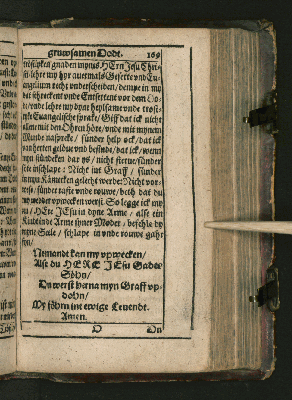 gruwsamen Dodt. 169
tröstliken gnaden mynes HErn Jesu Chri-
sti: lehre my hyr auermals Gesette vnd Eu-
angelium recht vnderscheiden / dempe in my
dat schrecken vnde Entsettent vor dem Do-
de / vnde lehre my dyne heylsame vnde trost-
ryke Euangelische sprake / Giff dat ick nicht
allene mit den Ohren höre / vnde mit mynem
Munde naspreke / sünder help ock / dat ick
van herten gelöue vnd befinde / dat ick / wenn
myn stündeken dar ys / nicht sterue / sünder
inschlape: Nicht int Graff / sünder
in myn Kämerken gelecht werde: Nicht vor-
wese / sünder raste vnde rouwe / beth dat du
my wedder vpwecken werst. So legge ick my
nu / HErr JEsu in dyne Arme / alse ein
Kindeken de Arme syner Moder / befehle dy
myne Seele / schlape in vnde rouwe gahr
syn /
Nemandt kan my vpwecken /
Alse du HERE JEsu Gades
Söhn /
Du werst herna myn Graff vp-
dohn /
My föhrn int ewige Leuendt.
Amen.
O Dn